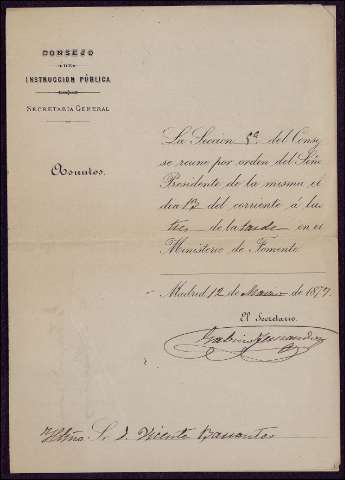 CONSEJO
DE
INSTRUCCION PÚBLICA
SECRETARÍA GENERAL
Asuntos.
La Sección 5ª del Consejo
se reune por orden del Señor
Presidente de la misma, el
dia 13 del corriente á las
tres de la tarde en el
Ministerio de Fomento.
Madrid 12 de Marzo de 1877.
El Secretario.
Sr. D. Vicente Barrantes